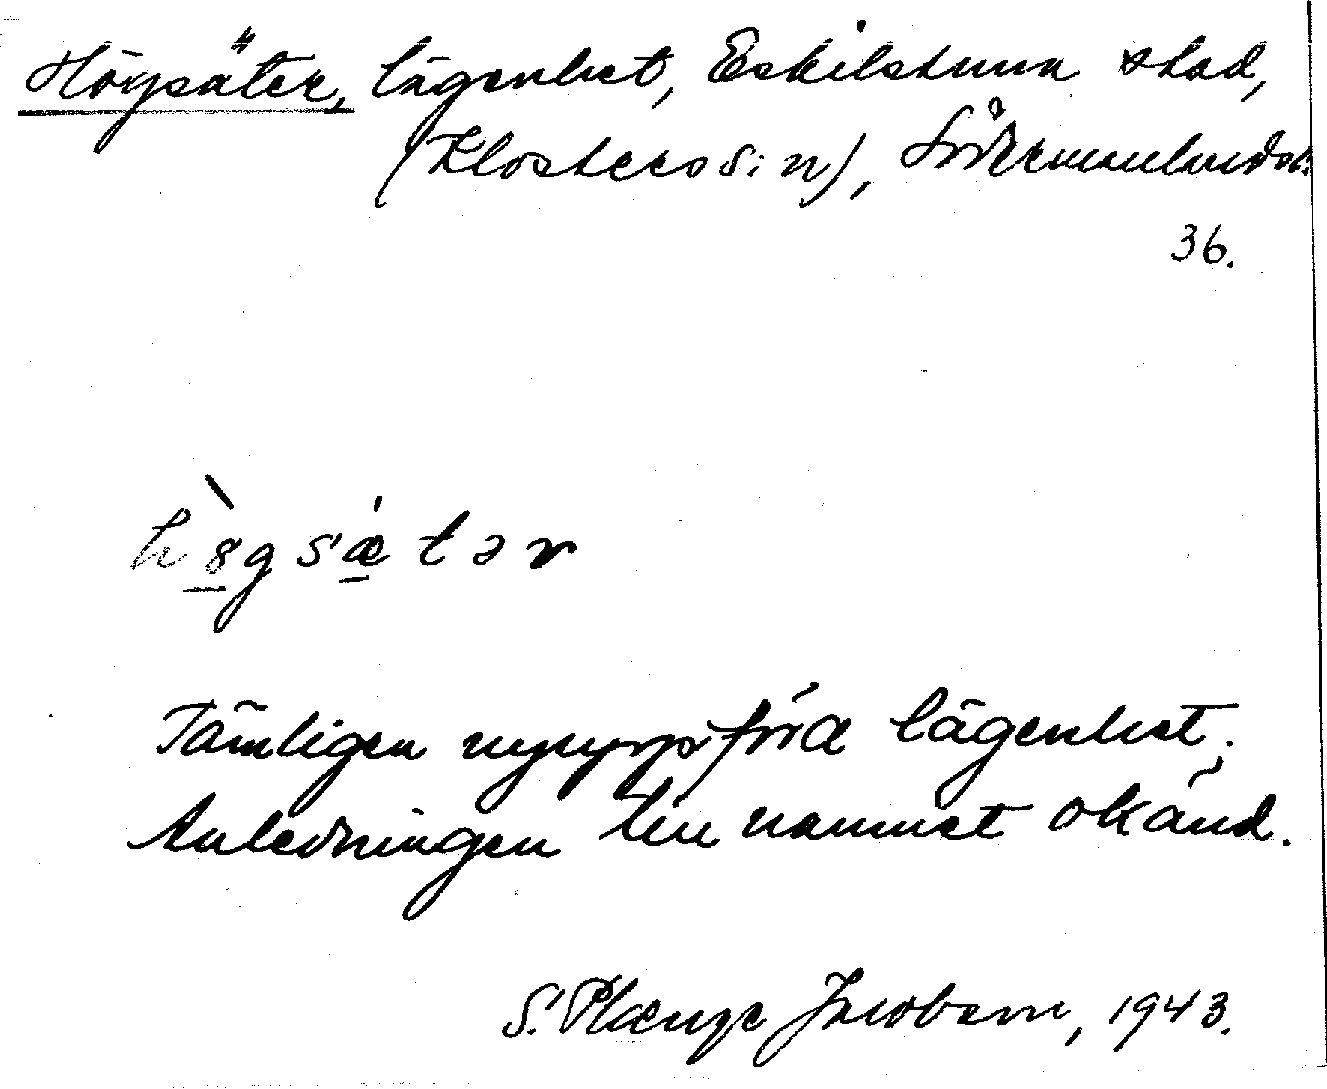 Högsäter, lägenhet, Eskilstuna stad,
(Klosters s:n), Södermanlands l.
36.
h ö̀ g s ǽ t ə r
Tämligen nyuppförd lägenhet;
Anledningen till namnet okänd.
S. Plænge Jacobson, 1943.